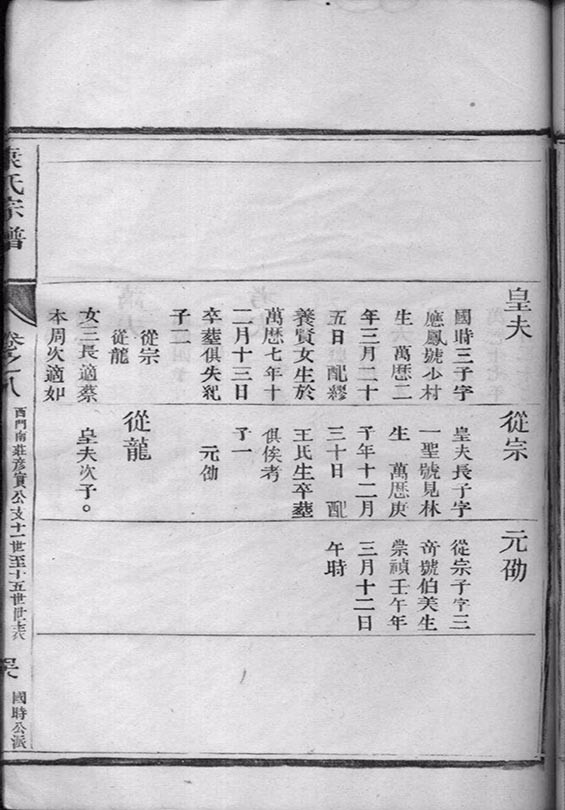 皇夫
國時三子字
應鳳號少村
生　萬厯二
年三月二十
五日　配繆
養賢女生於
萬厯七年十
二月十三日
卒塟俱失紀
子二
從宗
從龍
女二長適蔡
本周次適如
從宗
皇夫長子字
一聖號見林
生　萬厯庚
子年十二月
三十日　配
王氏生卒塟
俱俟考
子一
元劭
從龍
皇夫次子。
元劭
從宗子字三
奇號伯美生
崇禎壬午年
三月十二日
午時
氏宗譜
卷之八
西門南莊彥實公支十一世至十五世世表
國時公派